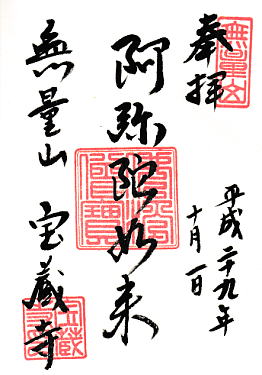 奉拝
無量山
平成二十九年
十月一日
阿弥陀如来
無量山 宝蔵寺